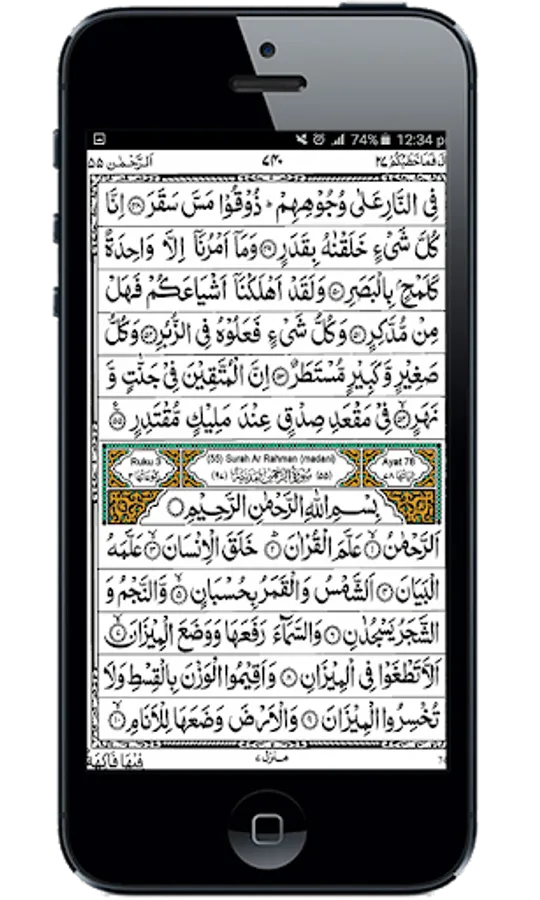 74% 12:34 p
اَلرَّحْمٰن ٥٥
٧٤٠
قَالَ فَمَا خَطْبُكُمْ ٢٧
فِى النَّارِ عَلٰى وُجُوْهِهِمْ ؕ ذُوْقُوْا مَسَّ سَقَرَ ﴿٤٨﴾ اِنَّا
كُلَّ شَىْءٍ خَلَقْنٰهُ بِقَدَرٍ ﴿٤٩﴾ وَمَاۤ اَمْرُنَاۤ اِلَّا وَاحِدَةٌ
كَلَمْحٍۭ بِالْبَصَرِ ﴿٥٠﴾ وَلَقَدْ اَهْلَكْنَاۤ اَشْيَاعَكُمْ فَهَلْ
مِنْ مُّدَّكِرٍ ﴿٥١﴾ وَكُلُّ شَىْءٍ فَعَلُوْهُ فِى الزُّبُرِ ﴿٥٢﴾ وَكُلُّ
صَغِيْرٍ وَّكَبِيْرٍ مُّسْتَطَرٌ ﴿٥٣﴾ اِنَّ الْمُتَّقِيْنَ فِىْ جَنّٰتٍ وَّ
نَهَرٍ ﴿٥٤﴾ فِىْ مَقْعَدِ صِدْقٍ عِنْدَ مَلِيْكٍ مُّقْتَدِرٍ ﴿٥٥﴾
Ruku 3 (55) Surah Ar Rahman (madani) Ayat 78
(٥٥) سُوْرَةُ الرَّحْمٰنِ مَدَنِيَّةٌ
بِسْمِ اللّٰهِ الرَّحْمٰنِ الرَّحِيْمِ
اَلرَّحْمٰنُ ﴿١﴾ عَلَّمَ الْقُرْاٰنَ ﴿٢﴾ خَلَقَ الْاِنْسَانَ ﴿٣﴾ عَلَّمَهُ
الْبَيَانَ ﴿٤﴾ اَلشَّمْسُ وَالْقَمَرُ بِحُسْبَانٍ ﴿٥﴾ وَّالنَّجْمُ وَ
الشَّجَرُ يَسْجُدٰنِ ﴿٦﴾ وَالسَّمَآءَ رَفَعَهَا وَوَضَعَ الْمِيْزَانَ ﴿٧﴾
اَلَّا تَطْغَوْا فِى الْمِيْزَانِ ﴿٨﴾ وَاَقِيْمُوا الْوَزْنَ بِالْقِسْطِ وَلَا
تُخْسِرُوا الْمِيْزَانَ ﴿٩﴾ وَالْاَرْضَ وَضَعَهَا لِلْاَنَامِ ﴿١٠﴾
منزل ٧
فِيْهَا فَاكِهَةٌ